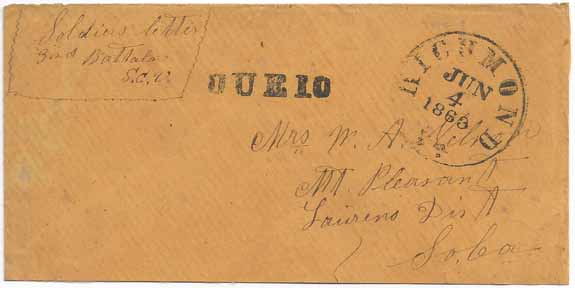 Soldiers letter
3rd Battalion
S.C.V.
DUE 10
RICHMOND
JUN
4
1863
Va.
Mrs W. A.
Mt. Pleasant
Laurens Dist
So. Ca